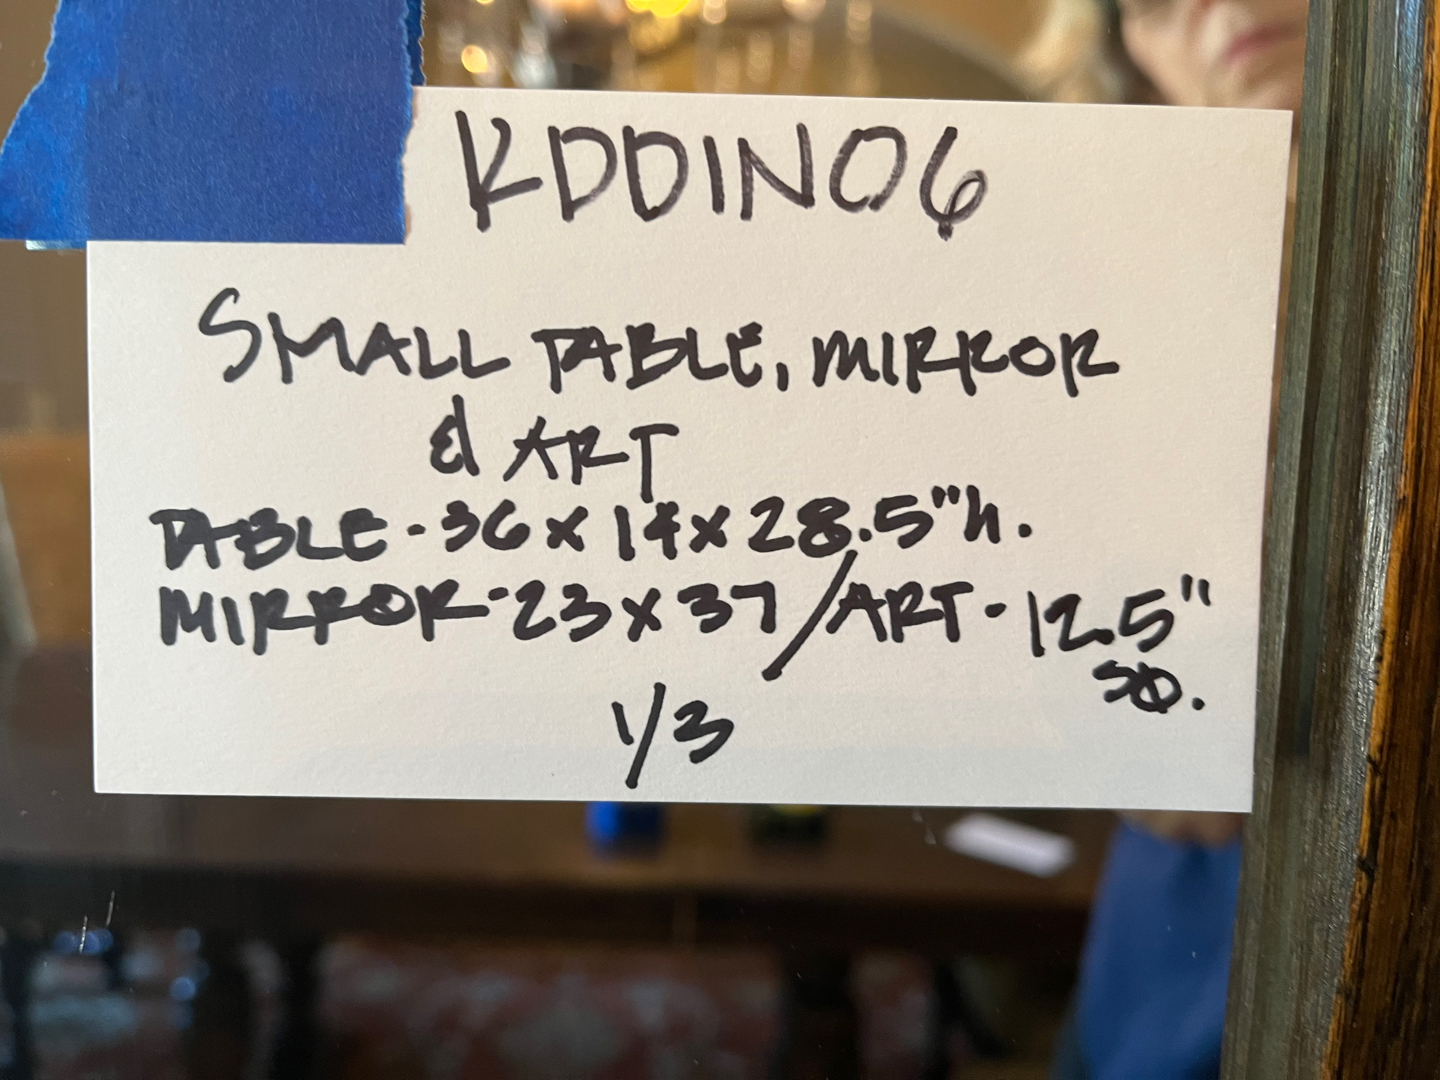 KDDIN06
SMALL TABLE, MIRROR
& ART
TABLE - 36 x 14 x 28.5" h.
MIRROR - 23 x 37 / ART - 12.5"
SQ.
1/3